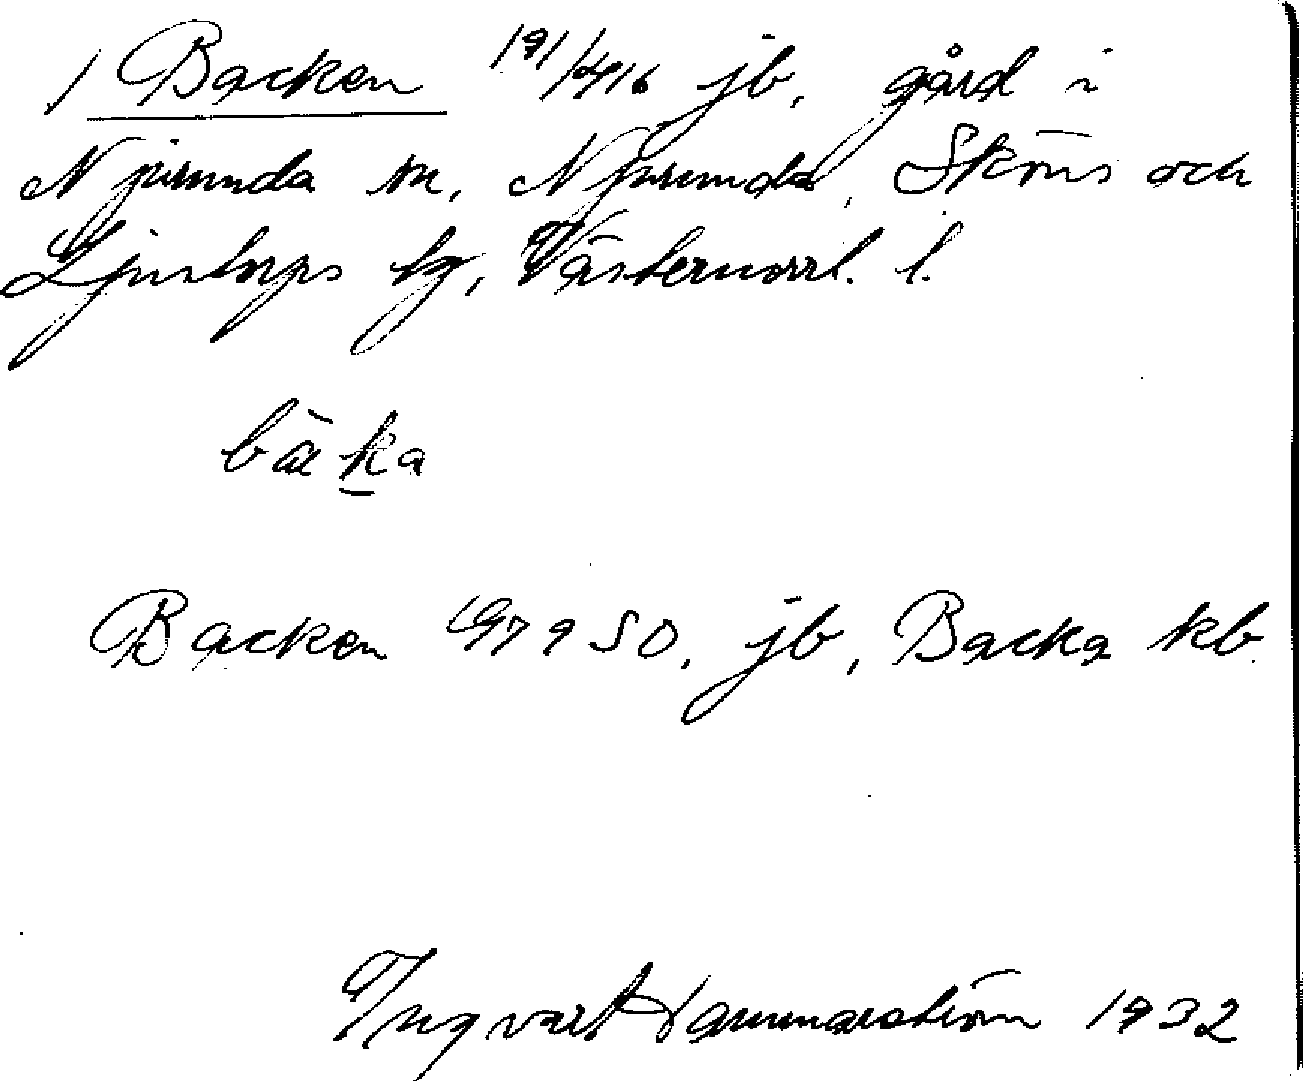 1 Backen 191/416 jb, gård i
Njurunda sn, Njurunda, Sköns och
Ljustorps tg, Västernorrl. l.
bäka
Backen G79 SO, jb, Backa kb
Ingvart Hammarström 1932